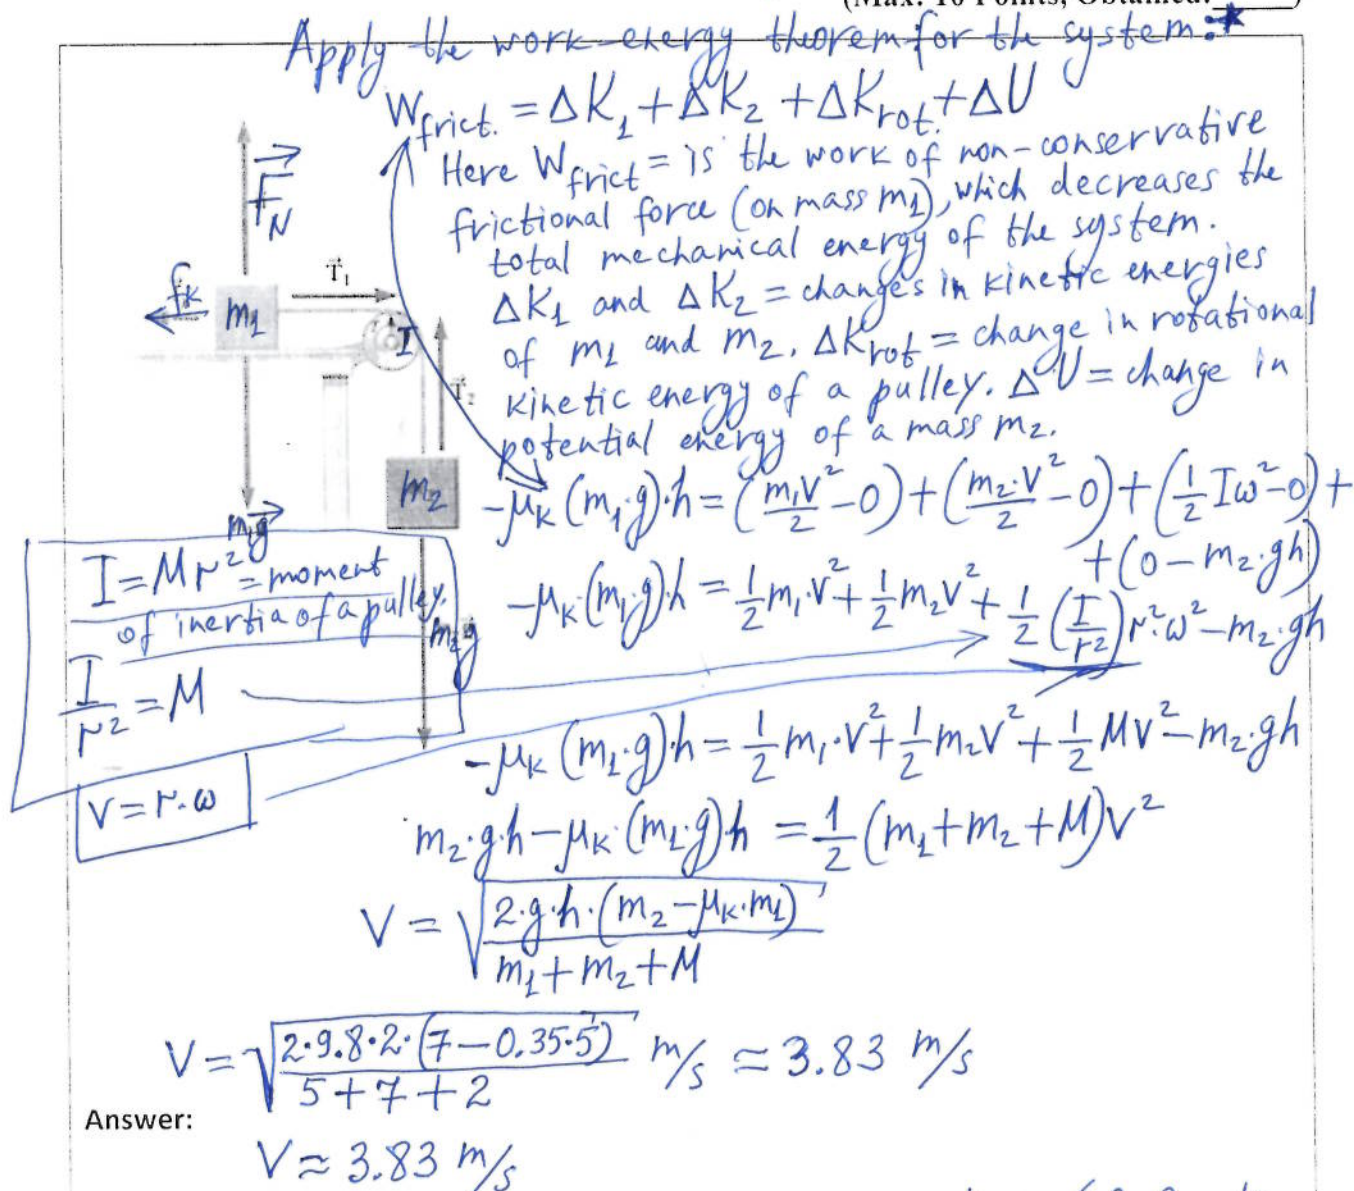 (Max. 10 Points, Obtained:
Apply the work-energy theorem for the system:*
W_frict. = ΔK_1 + ΔK_2 + ΔK_rot. + ΔU
Here W_frict = is the work of non-conservative
frictional force (on mass m_1), which decreases the
total mechanical energy of the system.
ΔK_1 and ΔK_2 = changes in kinetic energies
of m_1 and m_2. ΔK_rot = change in rotational
kinetic energy of a pulley. ΔU = change in
potential energy of a mass m_2.
F_N
f_k
m_1
T_1
I
T_2
m_2
m_1g
m_2g
-μ_k(m_1·g)·h = (m_1v²/2 - 0) + (m_2·v²/2 - 0) + (1/2 Iω² - 0) +
+ (0 - m_2·gh)
-μ_k·(m_1·g)·h = 1/2 m_1·v² + 1/2 m_2v² + 1/2 (I/r²) r²·ω² - m_2·gh
I = Mr² = moment
of inertia of a pulley.
I/r² = M
V = r·ω
-μ_k(m_1·g)·h = 1/2 m_1·v² + 1/2 m_2v² + 1/2 Mv² - m_2·gh
m_2·g·h - μ_k·(m_1·g)·h = 1/2 (m_1 + m_2 + M)v²
V = √(2·g·h·(m_2 - μ_k·m_1) / (m_1 + m_2 + M))
V = √(2·9.8·2·(7 - 0.35·5) / (5 + 7 + 2)) m/s ≈ 3.83 m/s
Answer:
V ≈ 3.83 m/s